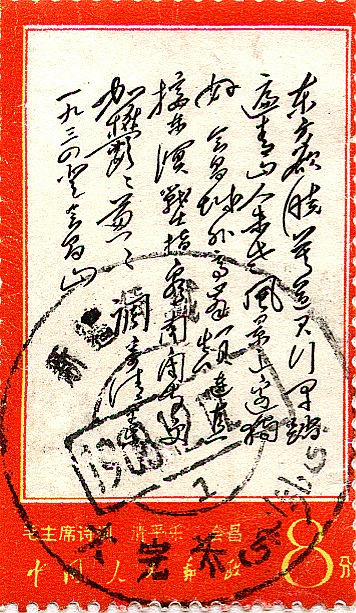 东方欲晓莫道君行早踏
遍青山人未老风景这边独
好 会昌城外高峰颠连直
接东溟战士指看南粤更
加欝〻葱〻 调寄清平乐
一九三四登会昌山
毛主席诗词 清平乐 会昌
中国人民邮政
8分